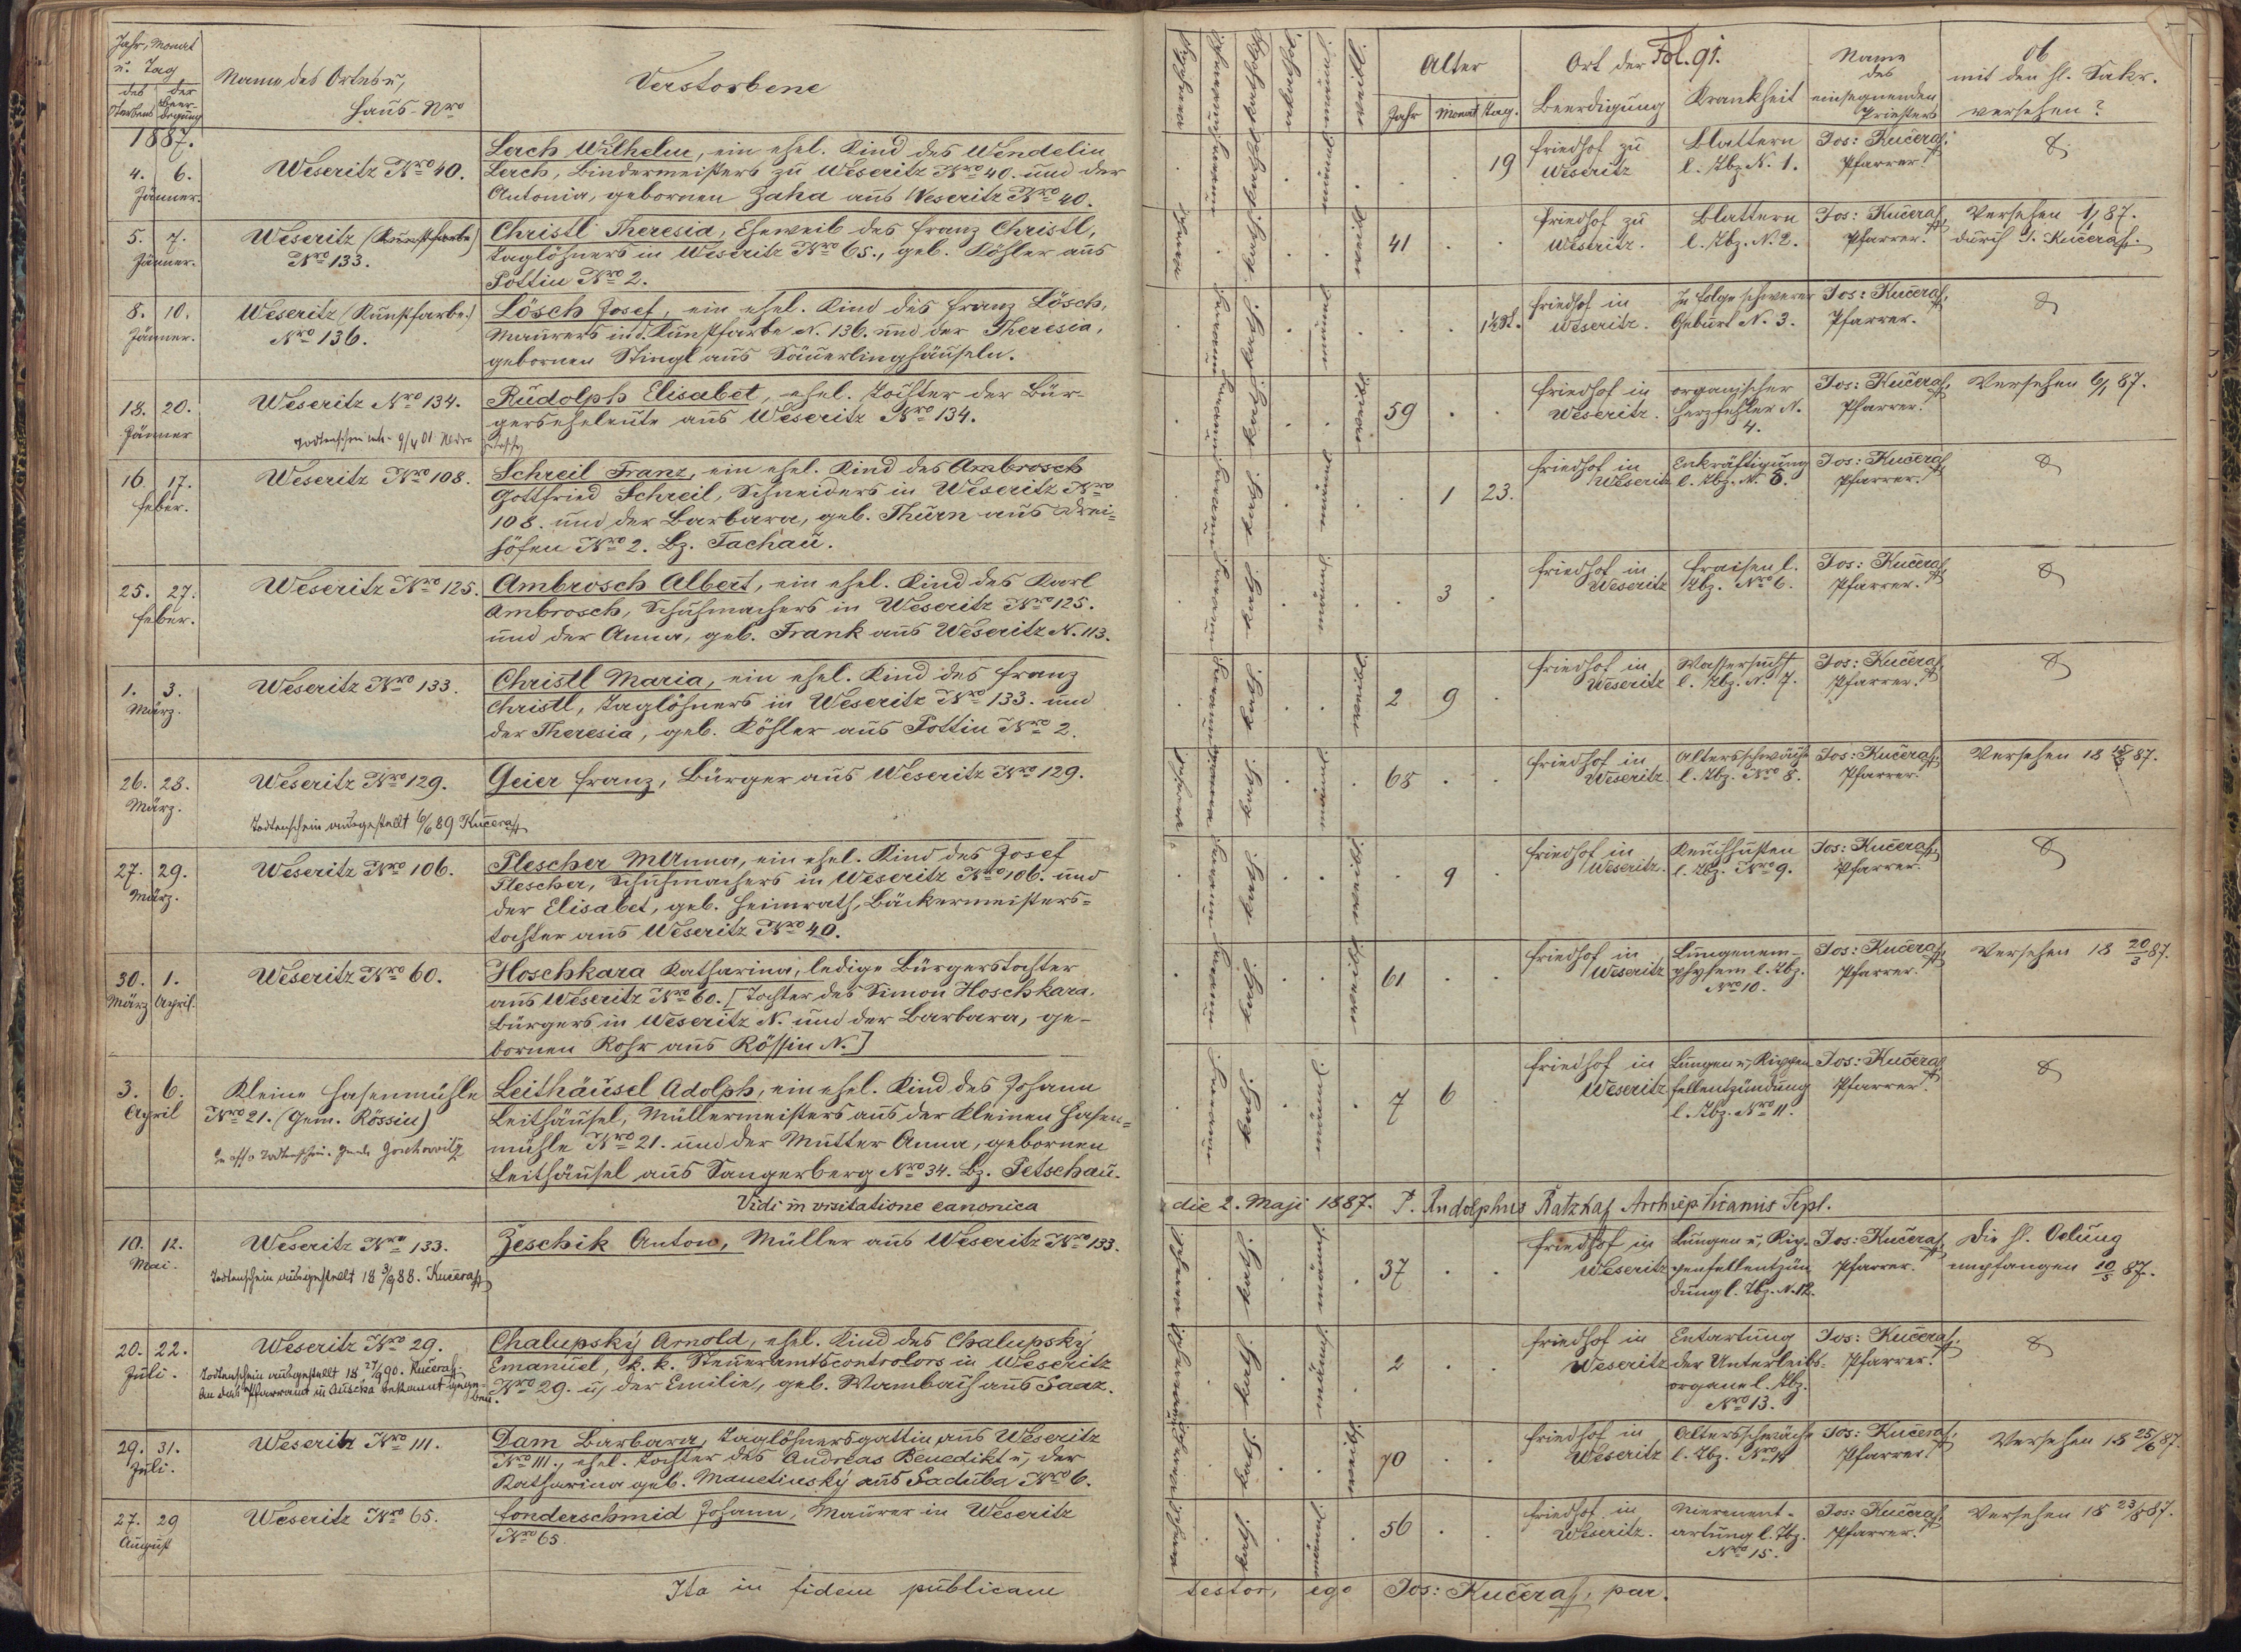 Jahr, Monat
u. Tag
des Sterbens
der Beerdigung
Name des Ortes u,
Haus-Nro
Verstorbene
1887.
4. 6.
Jänner.
Weseritz Nro 40.
Lerch Wilhelm, ein ehel. Kind des Wendelin
Lerch, Bindermeisters zu Weseritz Nro 40. und der
Antonia, gebornen Zaha aus Weseritz Nro 40.
5. 7.
Jänner.
Weseritz (Kunstfarbe)
Nro 133.
Christl Theresia, Eheweib des Franz Christl,
Taglöhners in Weseritz Nro 65., geb. Köhler aus
Pottin Nro 2.
8. 10.
Jänner.
Weseritz (Kunstfarbe.)
Nro 136.
Lösch Josef, ein ehel. Kind des Franz Lösch,
Maurers in d. Kunstfarbe N. 136. und der Theresia,
gebornen Stingl aus Säuerlinghäuseln.
18. 20.
Jänner
Weseritz Nro 134.
Rudolph Elisabet, ehel. Tochter der Bür-
gerseheleute aus Weseritz Nro 134.
16. 17.
Feber.
Weseritz Nro 108.
Schreil Franz, ein ehel. Kind des Ambrosch
Gottfried Schreil, Schneiders in Weseritz Nro
108. und der Barbara, geb. Thurn aus Drei=
höfen Nro 2. Bz. Tachau.
25. 27.
Feber.
Weseritz Nro 125.
Ambrosch Albert, ein ehel. Kind des Karl
Ambrosch, Schuhmachers in Weseritz Nro 125.
und der Anna, geb. Frank aus Weseritz N. 113.
1. 3.
März.
Weseritz Nro 133.
Christl Maria, ein ehel. Kind des Franz
Christl, Taglöhners in Weseritz Nro 133. und
der Theresia, geb. Köhler aus Pottin Nro 2.
26. 28.
März.
Weseritz Nro 129.
Todtenschein ausgestellt 6/6 89 Kučera
Geier Franz, Bürger aus Weseritz Nro 129.
27. 29.
März.
Weseritz Nro 106.
Plescher MAnna, ein ehel. Kind des Josef
Plescher, Schuhmachers in Weseritz Nro 106. und
der Elisabet, geb. Heimrath, Bäckermeisters=
tochter aus Weseritz Nro 40.
30. 1.
März April.
Weseritz Nro 60.
Hoschkara Katharina, ledige Bürgerstochter
aus Weseritz Nro 60. [Tochter des Simon Hoschkara,
Bürgers in Weseritz N. und der Barbara, ge-
bornen Rohr aus Rössin N.]
3. 6.
April
Kleine Hasenmühle
Nro 21. (Gem. Rössin)
Leithäusel Adolph, ein ehel. Kind des Johann
Leithäusel, Müllermeisters aus der Kleinen Hasen=
mühle Nro 21. und der Mutter Anna, gebornen
Leithäusel aus Sangerberg Nro 34. Bz. Petschau.
Vidi in visitatione canonica
10. 12.
Mai.
Weseritz Nro 133.
Todtenschein ausgestellt 18 3/9 88. Kučera
Zeschik Anton, Müller aus Weseritz Nro 133.
20. 22.
Juli.
Weseritz Nro 29.
Todtenschein ausgestellt 18 27/9 90. Kučera
An das Pfarramt in Auscha bekannt gege-
ben.
Chalupský Arnold, ehel. Kind des Chalupský
Emanuel, k. k. Steueramtscontrolors in Weseritz
Nro 29. u, der Emilie, geb. Wambach aus Saaz.
29. 31.
Juli.
Weseritz Nro 111.
Dam Barbara, Taglöhnersgattin aus Weseritz
Nro 111., ehel. Tochter des Andreas Benedikt u, der
Katharina geb. Manetinský aus Saduba Nro 6.
27. 29
August
Weseritz Nro 65.
Fonderschmid Johann, Maurer in Weseritz
Nro 65
Ita in fidem publicam
Alter
Jahr Monat Tag.
Ort der
Beerdigung
Fol. 91.
Krankheit
Name
des
einsegnenden
Priesters
ob
mit den hl. Sakr.
versehen?
männl.
19
Friedhof zu
Weseritz
Blattern
l. Tbz. N. 1.
Jos: Kučera,
Pfarrer.
weibl.
41
Friedhof zu
Weseritz.
Blattern
l. Tbz. N. 2.
Jos: Kučera,
Pfarrer.
Versehen 1/1 87.
durch J. Kučera.
männl.
1½ St.
Friedhof in
Weseritz.
In Folge schwerer
Geburt N. 3.
Jos: Kučera,
Pfarrer.
weibl.
59
Friedhof in
Weseritz.
organischer
Herzfehler N.
4.
Jos: Kučera,
Pfarrer.
Versehen 6/1 87.
männl.
1 23.
Friedhof in
Weseritz
Enkräftigung
l. Tbz. N. 5.
Jos: Kučera
Pfarrer.
männl.
3
Friedhof in
Weseritz
Fraisen l.
Tbz. Nro 6.
Jos: Kučera
Pfarrer.
weibl.
2 9
Friedhof in
Weseritz
Wassersucht
l. Tbz. N. 7.
Jos: Kučera
Pfarrer.
männl.
68
Friedhof in
Weseritz.
Altersschwäche
l. Tbz. Nro 8.
Jos: Kučera,
Pfarrer.
Versehen 18 87.
weibl.
9
Friedhof in
Weseritz.
Keuchhusten
l. Tbz. Nro 9.
Jos: Kučera,
Pfarrer.
weibl.
61
Friedhof in
Weseritz
Lungenem-
physem l. Tbz.
Nro 10.
Jos: Kučera,
Pfarrer.
Versehen 18 20/3 87.
männl.
7 6
Friedhof in
Weseritz
Lungen u, Rippen
fellentzündung
l. Tbz. Nro 11.
Jos: Kučera
Pfarrer.
die 2. Maji 1887. P. Rudolphus Ratzka, Archiep Vicarius Tepl.
männl.
37
Friedhof in
Weseritz
Lungen u, Rip-
penfellentzün
dung l. Tbz. N. 12.
Jos: Kučera,
Pfarrer.
Die hl. Oelung
empfangen 10/5 87.
männl.
2
Friedhof in
Weseritz
Entartung
der Unterleibs=
organe l. Tbz.
Nro 13.
Jos: Kučera,
Pfarrer.
weibl.
70
Friedhof in
Weseritz
Altersschwäche
l. Tbz. Nro 14
Jos: Kučera,
Pfarrer.
Versehen 18 25/6 87.
männl.
56
Friedhof in
Weseritz.
Nierenent-
artung l. Tbz.
Nro 15.
Jos: Kučera,
Pfarrer.
Versehen 18 23/8 87.
testor, ego Jos: Kučera, par.